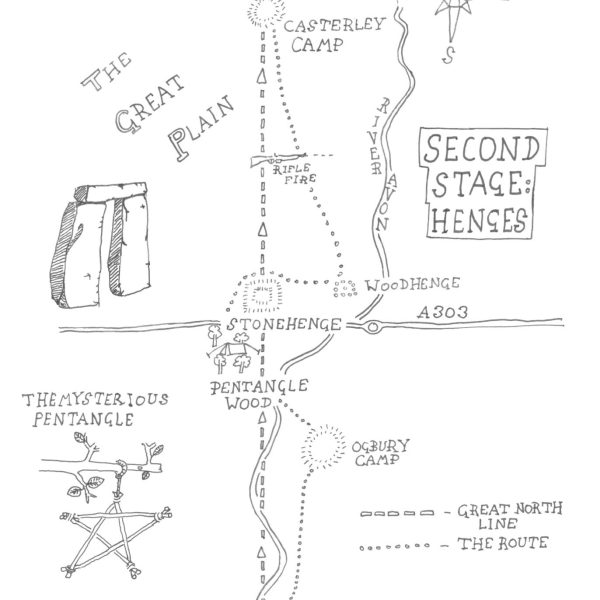 CASTERLEY
CAMP
S
THE
GREAT
PLAIN
RIVER AVON
SECOND
STAGE:
HENGES
RIFLE
FIRE
WOODHENGE
STONEHENGE
A303
PENTANGLE
WOOD
THE MYSTERIOUS
PENTANGLE
OGBURY
CAMP
- GREAT NORTH
LINE
- THE ROUTE